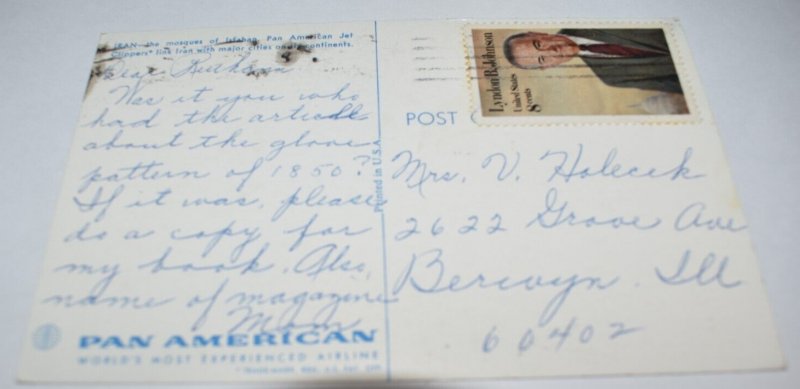 IRAN—the mosques of Isfahan. Pan American Jet
Clippers* link Iran with major cities on continents.
Dear
Was it you who
had the article
about the glove
pattern of 1850?
If it was, please
do a copy for
my book. Also,
name of magazine
Mom
PAN AMERICAN
WORLD'S MOST EXPERIENCED AIRLINE
Printed in U.S.A.
POST C
Lyndon B. Johnson
United States
8 cents
Mrs. V. Holecek
2622 Grove Ave
Berwyn. Ill
60402